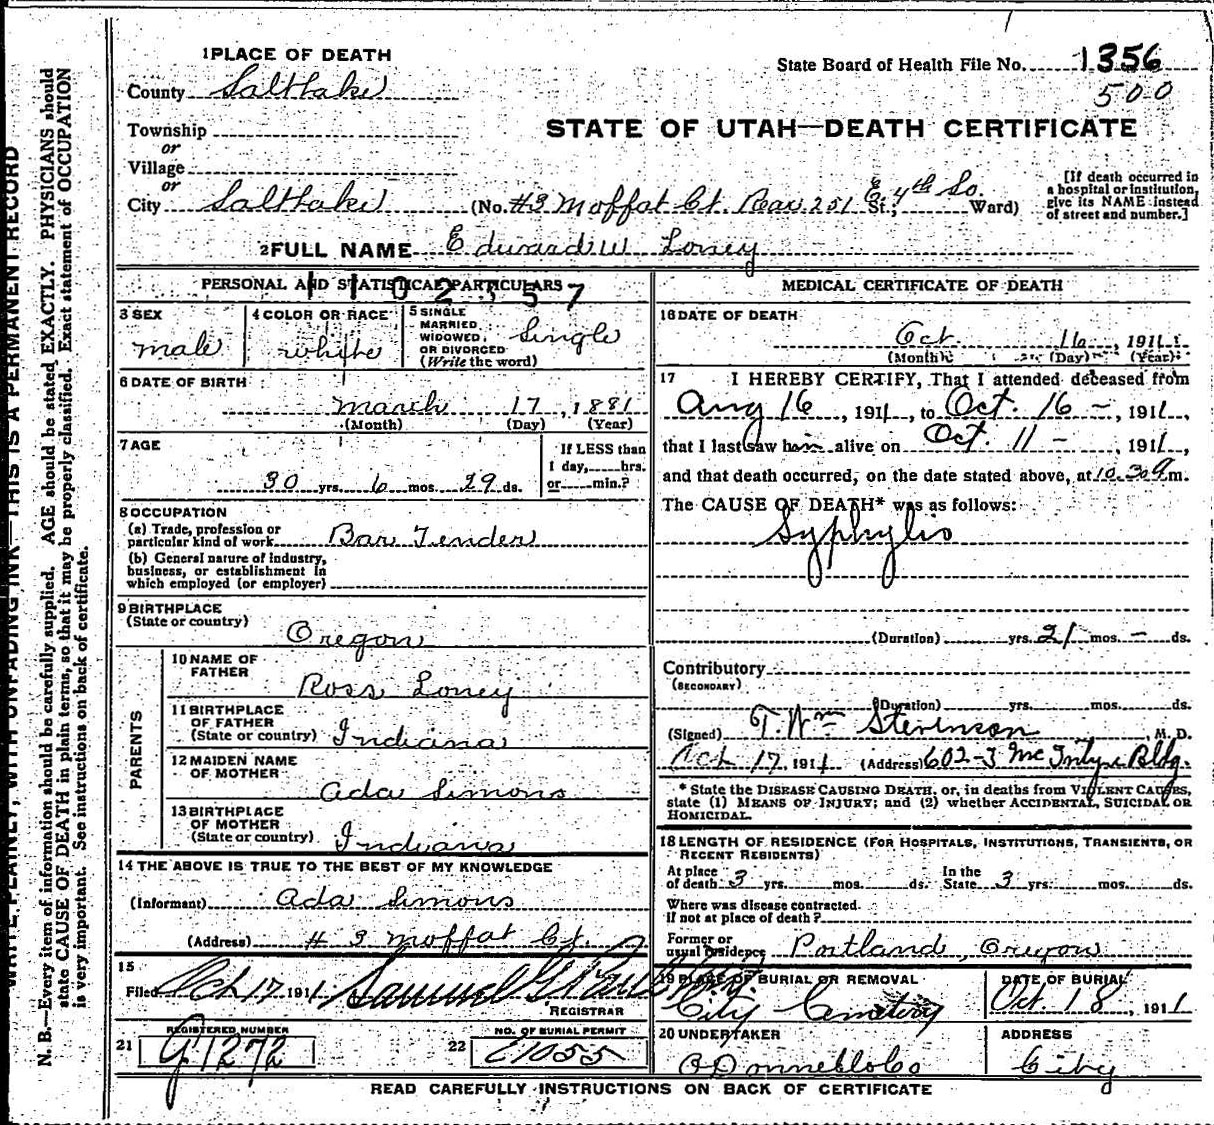 1 PLACE OF DEATH
State Board of Health File No. 1356
500
County Salt Lake
STATE OF UTAH—DEATH CERTIFICATE
Township
or
Village
or
City Salt Lake (No. #3 Moffat Ct. Rear 251 E 4th So. St; Ward)
[If death occurred in a hospital or institution, give its NAME instead of street and number.]
2 FULL NAME Edward W Loney
PERSONAL AND STATISTICAL PARTICULARS
1102357
3 SEX
male
4 COLOR OR RACE
white
5 SINGLE MARRIED, WIDOWED, OR DIVORCED (Write the word)
Single
6 DATE OF BIRTH
March 17, 1881
(Month) (Day) (Year)
7 AGE
30 yrs. 6 mos. 29 ds.
If LESS than 1 day, hrs. or min.?
8 OCCUPATION
(a) Trade, profession or particular kind of work Bar Tender
(b) General nature of industry, business, or establishment in which employed (or employer)
9 BIRTHPLACE
(State or country)
Oregon
PARENTS
10 NAME OF FATHER
Ross Loney
11 BIRTHPLACE OF FATHER
(State or country) Indiana
12 MAIDEN NAME OF MOTHER
Ada Simons
13 BIRTHPLACE OF MOTHER
(State or country) Indiana
14 THE ABOVE IS TRUE TO THE BEST OF MY KNOWLEDGE
(Informant) Ada Simons
(Address) # 3 Moffat Ct.
15
Filed Oct 17 1911 Samuel G.
REGISTRAR
REGISTERED NUMBER
21 G1272
NO. OF BURIAL PERMIT
22 E1055
MEDICAL CERTIFICATE OF DEATH
16 DATE OF DEATH
Oct. 16, 1911
(Month) (Day) (Year)
17 I HEREBY CERTIFY, That I attended deceased from
Aug 16, 1911, to Oct. 16 -, 1911,
that I last saw him alive on Oct. 11 -, 1911,
and that death occurred, on the date stated above, at 10.30 m.
The CAUSE OF DEATH* was as follows:
Syphylis
(Duration) yrs. 21 mos. - ds.
Contributory
(SECONDARY)
(Duration) yrs. mos. ds.
(Signed) T. Wm Stevenson, M. D.
Oct 17, 1911 (Address) 602-3 McIntyre Bldg.
* State the DISEASE CAUSING DEATH, or, in deaths from VIOLENT CAUSES, state (1) MEANS OF INJURY; and (2) whether ACCIDENTAL, SUICIDAL OR HOMICIDAL.
18 LENGTH OF RESIDENCE (FOR HOSPITALS, INSTITUTIONS, TRANSIENTS, OR RECENT RESIDENTS)
At place of death 3 yrs. mos. ds. In the State 3 yrs. mos. ds.
Where was disease contracted
if not at place of death?
Former or usual residence Portland, Oregon
19 PLACE OF BURIAL OR REMOVAL
City Cemetery
DATE OF BURIAL
Oct. 18, 1911
20 UNDERTAKER
O'Donnell & Co
ADDRESS
City
READ CAREFULLY INSTRUCTIONS ON BACK OF CERTIFICATE
WRITE PLAINLY, WITH UNFADING INK—THIS IS A PERMANENT RECORD
N. B.—Every item of information should be carefully supplied. AGE should be stated EXACTLY. PHYSICIANS should
state CAUSE OF DEATH in plain terms, so that it may be properly classified. Exact statement of OCCUPATION
is very important. See instructions on back of certificate.